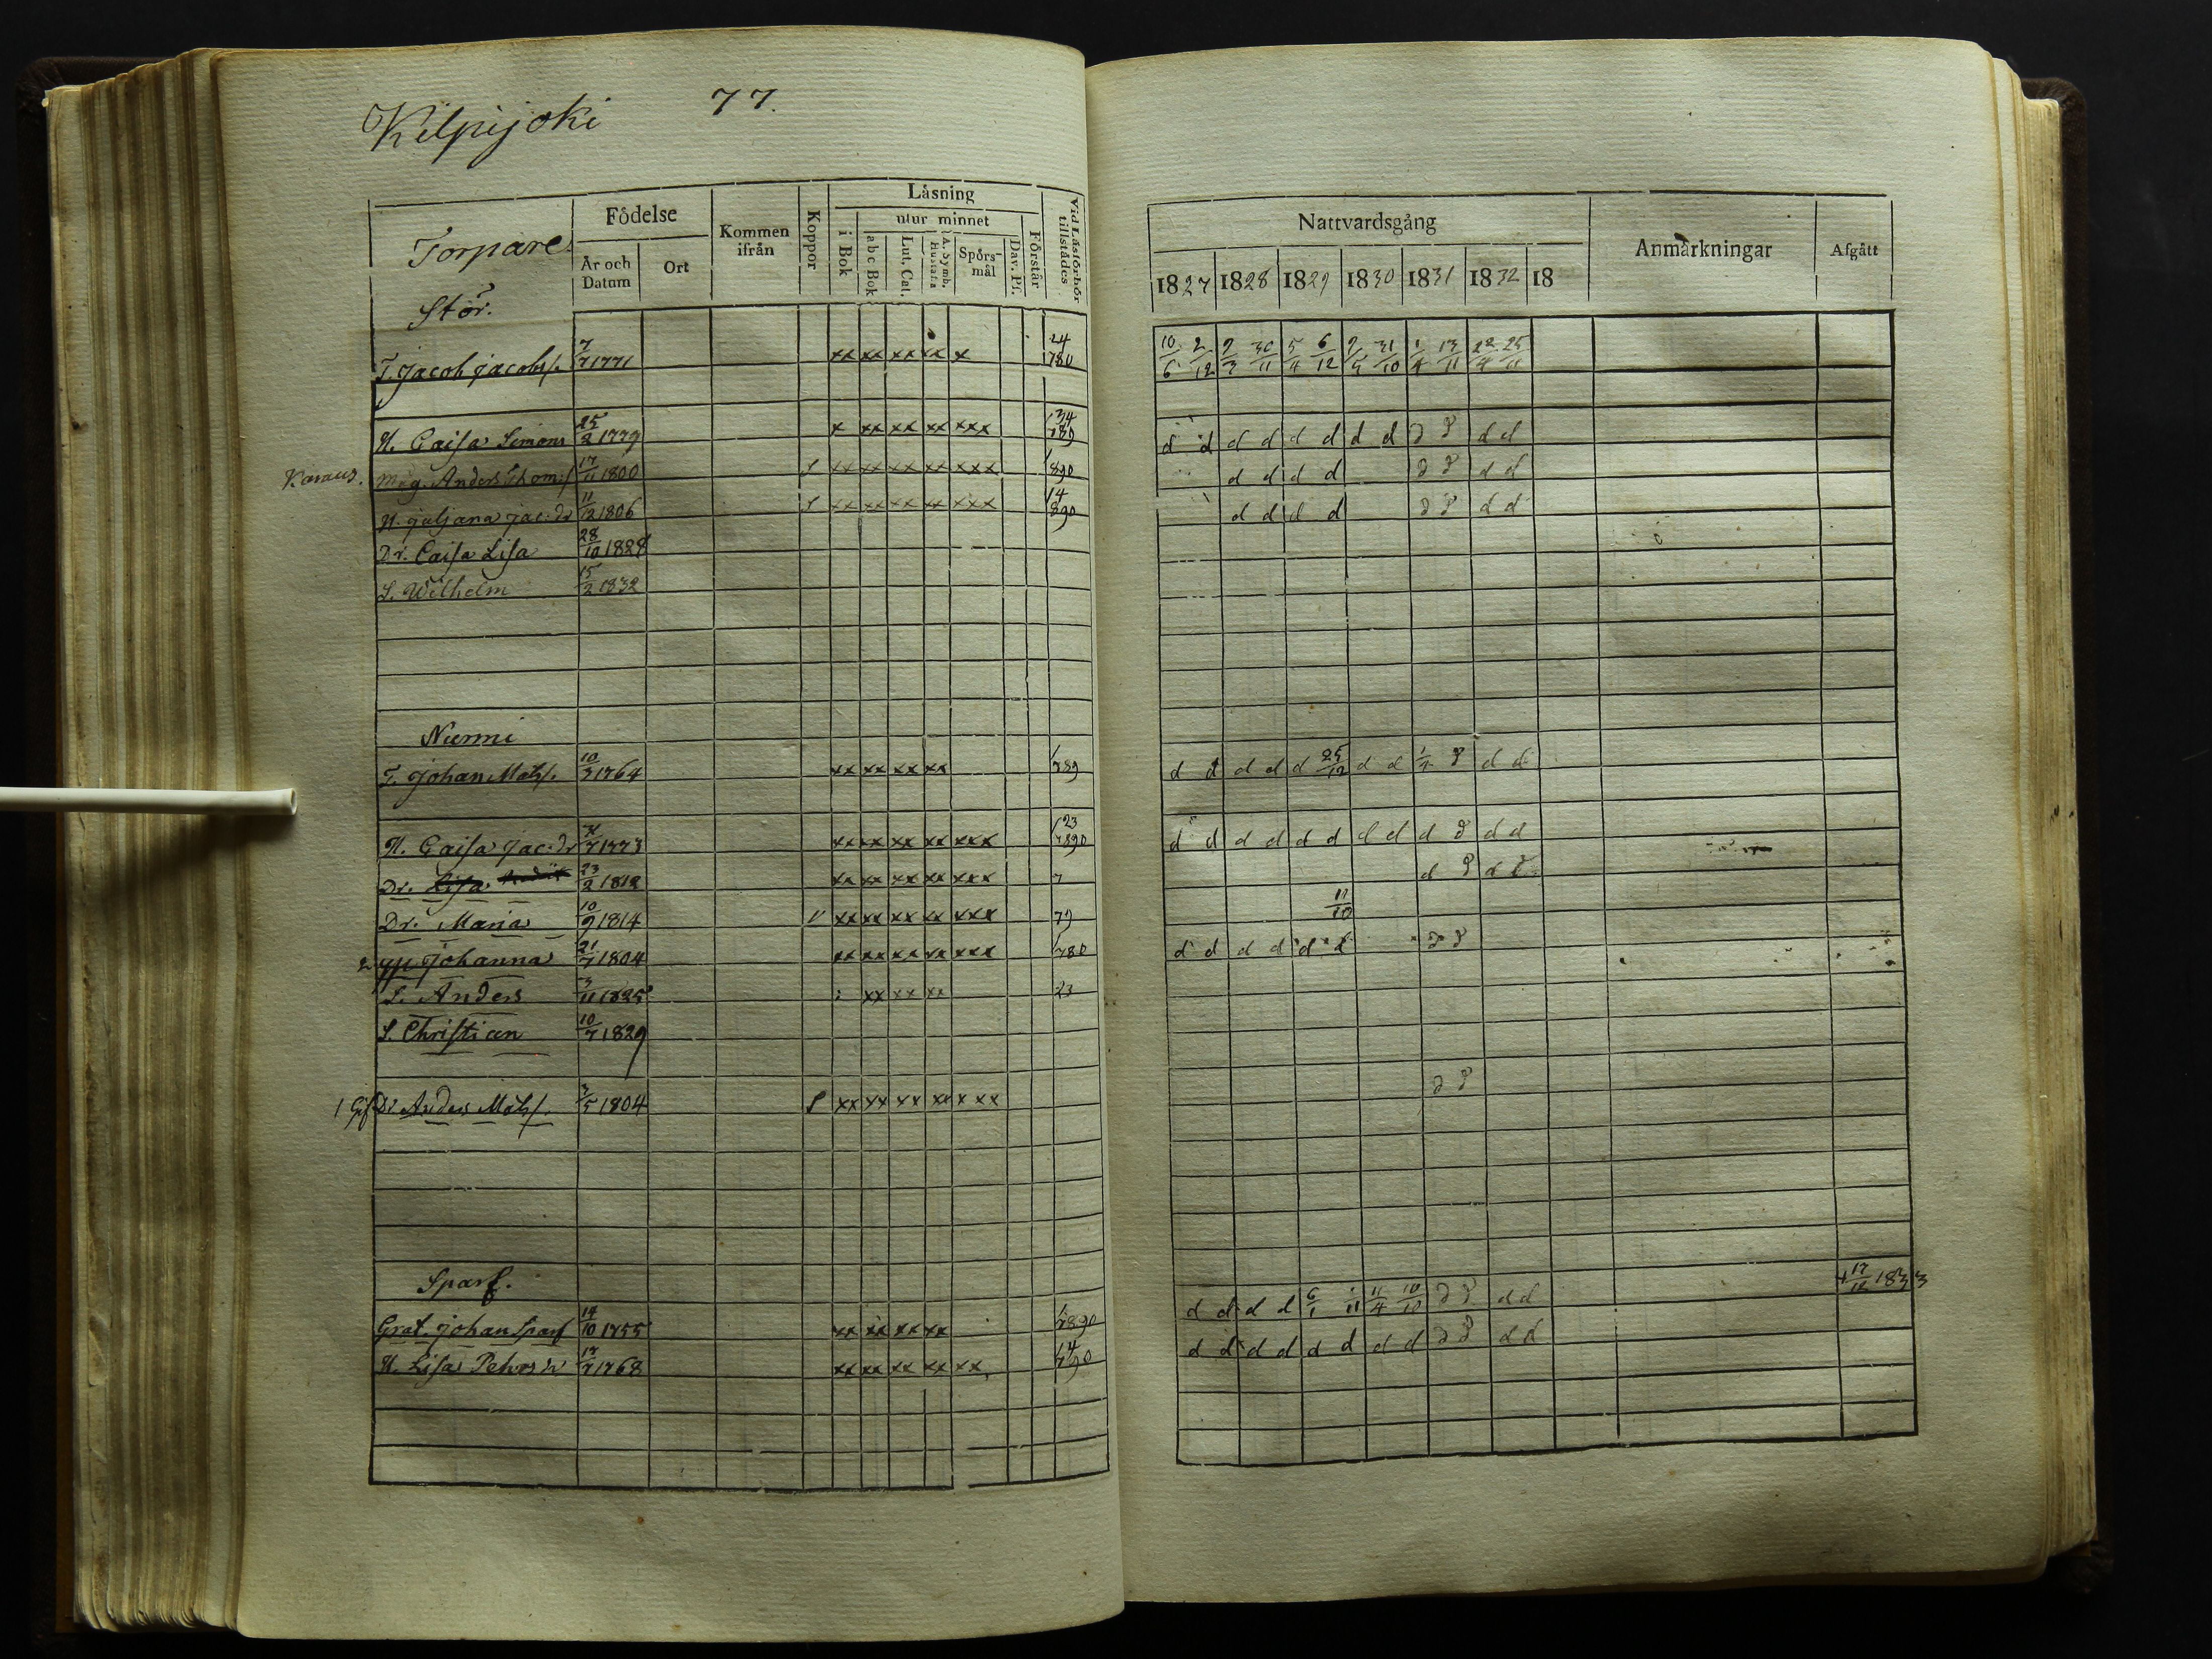 Kilpijoki 77.
Torpare
Födelse
År och Datum
Ort
Kommen ifrån
Koppor
Läsning
i Bok
utur minnet
a b c Bok
Lut. Cat.
A. Symb. Hustafla
Spörs-mål
Dav. Ps.
Förstår
Vid Läsförhör tillstädes
Nattvardsgång
1827 1828 1829 1830 1831 1832 18
Anmärkningar
Afgått
Stör.
T. Jacob Jacobs. 7/7 1771 xx xx xx xx x 24 780 10/6 2/12 2/3 30/11 5/4 6/12 2/5 31/10 1/4 13/11 22/4 25/11
H. Caisa Simons 25/2 1779 x xx xx xx xxx 34 789 d d d d d d d d d d d d
Karaus. Måg. Anders Thoms 17/11 1800 S xx xx xx xx xxx 890 d d d d d d d d
H. Juljana Jac:dr 11/12 1806 S xx xx xx xx xxx 14 890 d d d d d d d d
Dr. Caisa Lisa 28/10 1828
S. Wilhelm 15/2 1832
Niemi
T. Johan Mats. 10/3 1764 xx xx xx xx 789 d d d d d 25/12 d d 1/4 d d d
H. Caisa Jac:dr 1773 xx xx xx xx xxx 23 7890 d d d d d d d d d d d d
Dr. Lisa 23/2 1812 xx xx xx xx xxx 7 d d d d
Dr. Maria 10/9 1814 V xx xx xx xx xxx 79 11/10
2 Johanna 21/7 1804 xx xx xx xx xxx 780 d d d d d d d d
S. Anders 3/11 1825 xx xx xx 23
S. Christian 10/7 1829
1 Gif Dr Anders Mats. 3/5 1804 S xx xx xx xx x xx d d
Sparf.
Grat. Johan Sparf 14/10 1755 xx xx xx xx 7890 d d d d 6/1 1/11 11/4 10/10 d d d d † 17/12 1833
H. Lisa Pehrs dr 17/7 1768 xx xx xx xx xx 4 790 d d d d d d d d d d d d